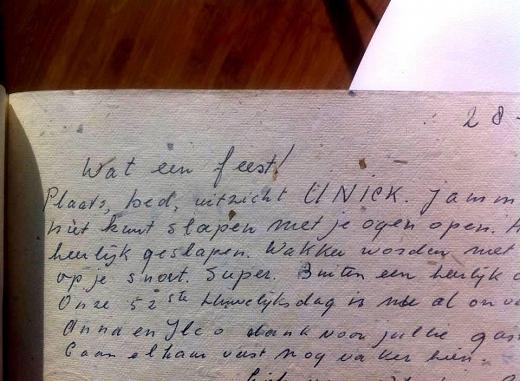 28-
Wat een feest!
Plaats, bed, uitzicht UNICK. Jamm
niet kunt slapen met je ogen open. H
heerlijk geslapen. Wakker worden met
op je snoet. Super. Buiten een heerlijk
Onze 52ste Huwelijksdag is nu al onve
Anna en Ilco dank voor jullie gas